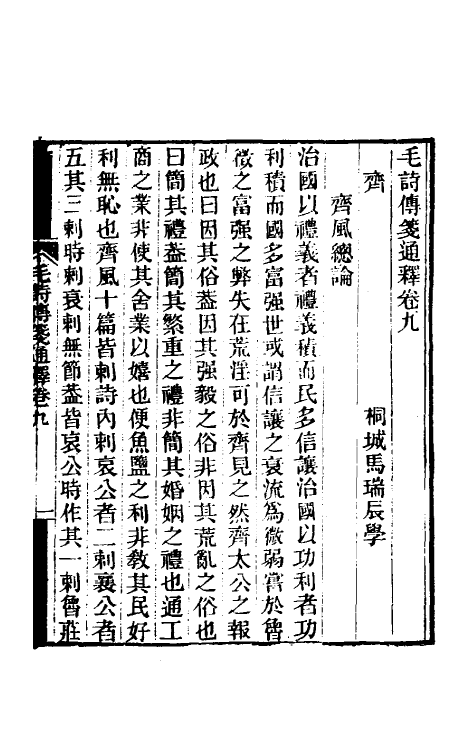 毛詩傳箋通釋卷九
齊
桐城馬瑞辰學
齊風總論
治國以禮義者禮義積而民多信讓治國以功利者功
利積而國多富强世或謂信讓之衰流爲微弱嘗於魯
徵之富强之弊失在荒淫可於齊見之然齊太公之報
政也曰因其俗葢因其强毅之俗非因其荒亂之俗也
曰簡其禮葢簡其繁重之禮非簡其婚姻之禮也通工
商之業非使其舍業以嬉也便魚鹽之利非敎其民好
利無恥也齊風十篇皆刺詩內刺哀公者二刺襄公者
五其三刺時刺衰刺無節葢皆哀公時作其一刺魯莊
毛詩傳箋通釋卷九
一